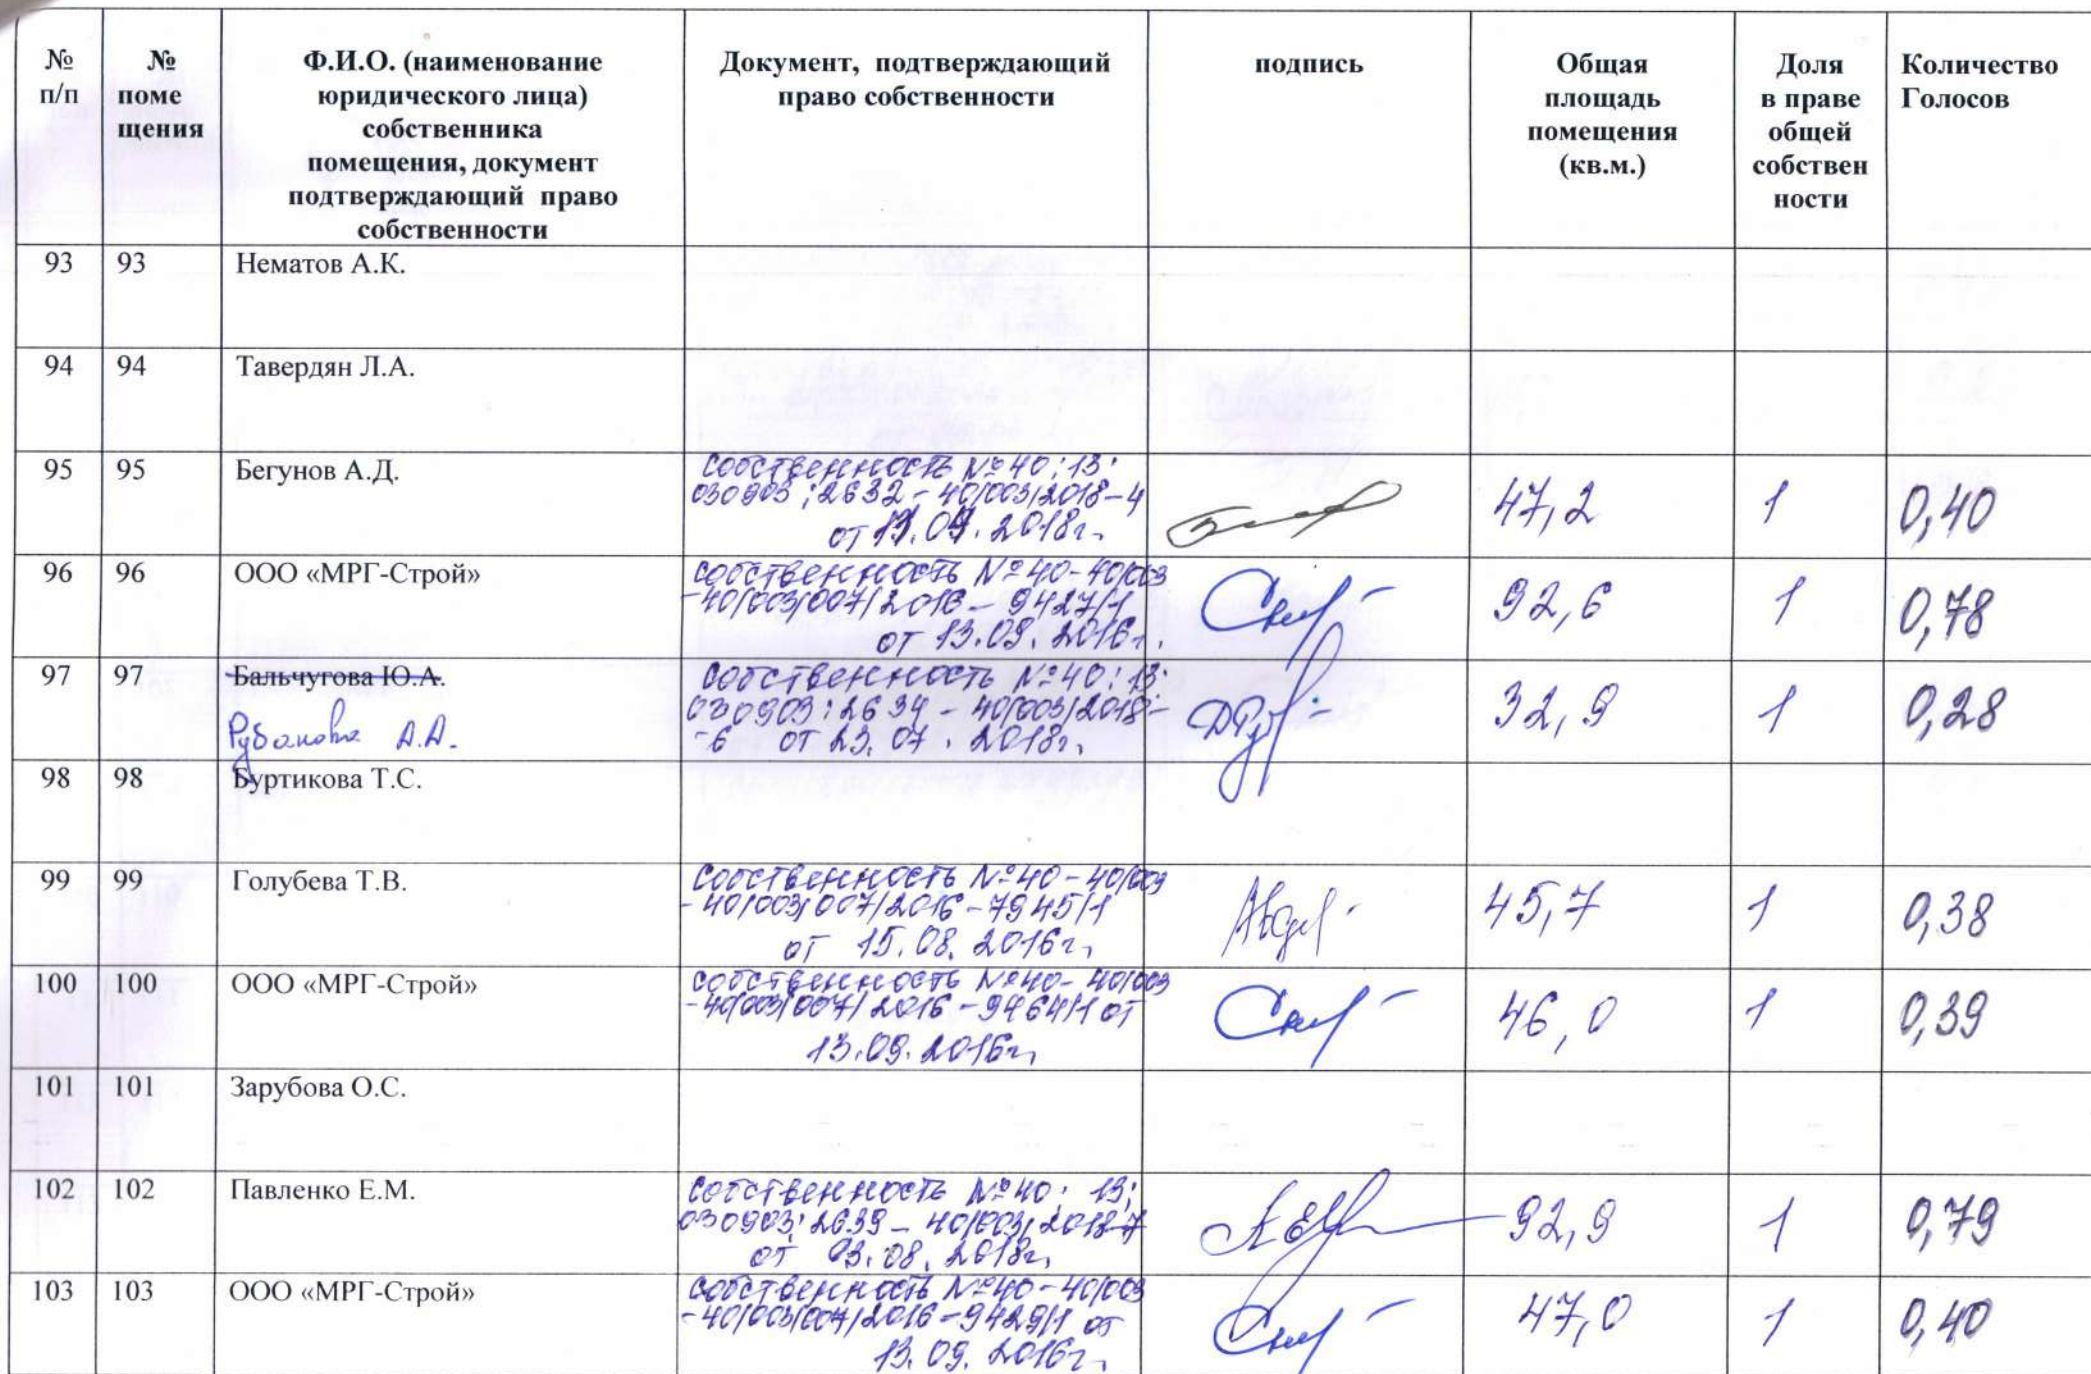 № п/п
№ поме щения
Ф.И.О. (наименование
юридического лица)
собственника
помещения, документ
подтверждающий право
собственности
Документ, подтверждающий
право собственности
подпись
Общая
площадь
помещения
(кв.м.)
Доля
в праве
общей
собствен
ности
Количество
Голосов
93 93 Нематов А.К.
94 94 Тавердян Л.А.
95 95 Бегунов А.Д.
собственность № 40:13:
030903:2632-40/003/2018-4
от 2018г.
47,2 1 0,40
96 96 ООО «МРГ-Строй»
собственность № 40-40/003
-40/003/007/2016-9427/1
от 13.09.2016г.
92,6 1 0,78
97 97 Бальчугова Ю.А.
Рубанова А.А.
собственность № 40:13:
030903:2634-40/003/2018-
-6 от 23.07.2018г.
32,9 1 0,28
98 98 Буртикова Т.С.
99 99 Голубева Т.В.
собственность № 40-40/003
-40/003/007/2016-7945/1
от 15.08.2016г.
45,7 1 0,38
100 100 ООО «МРГ-Строй»
собственность № 40-40/003
-40/003/007/2016-9464/1 от
13.09.2016г.
46,0 1 0,39
101 101 Зарубова О.С.
102 102 Павленко Е.М.
собственность № 40:13:
030903:2639-40/003/2018-7
от 03.08.2018г.
92,9 1 0,79
103 103 ООО «МРГ-Строй»
собственность № 40-40/003
-40/003/007/2016-9429/1 от
13.09.2016г.
47,0 1 0,40